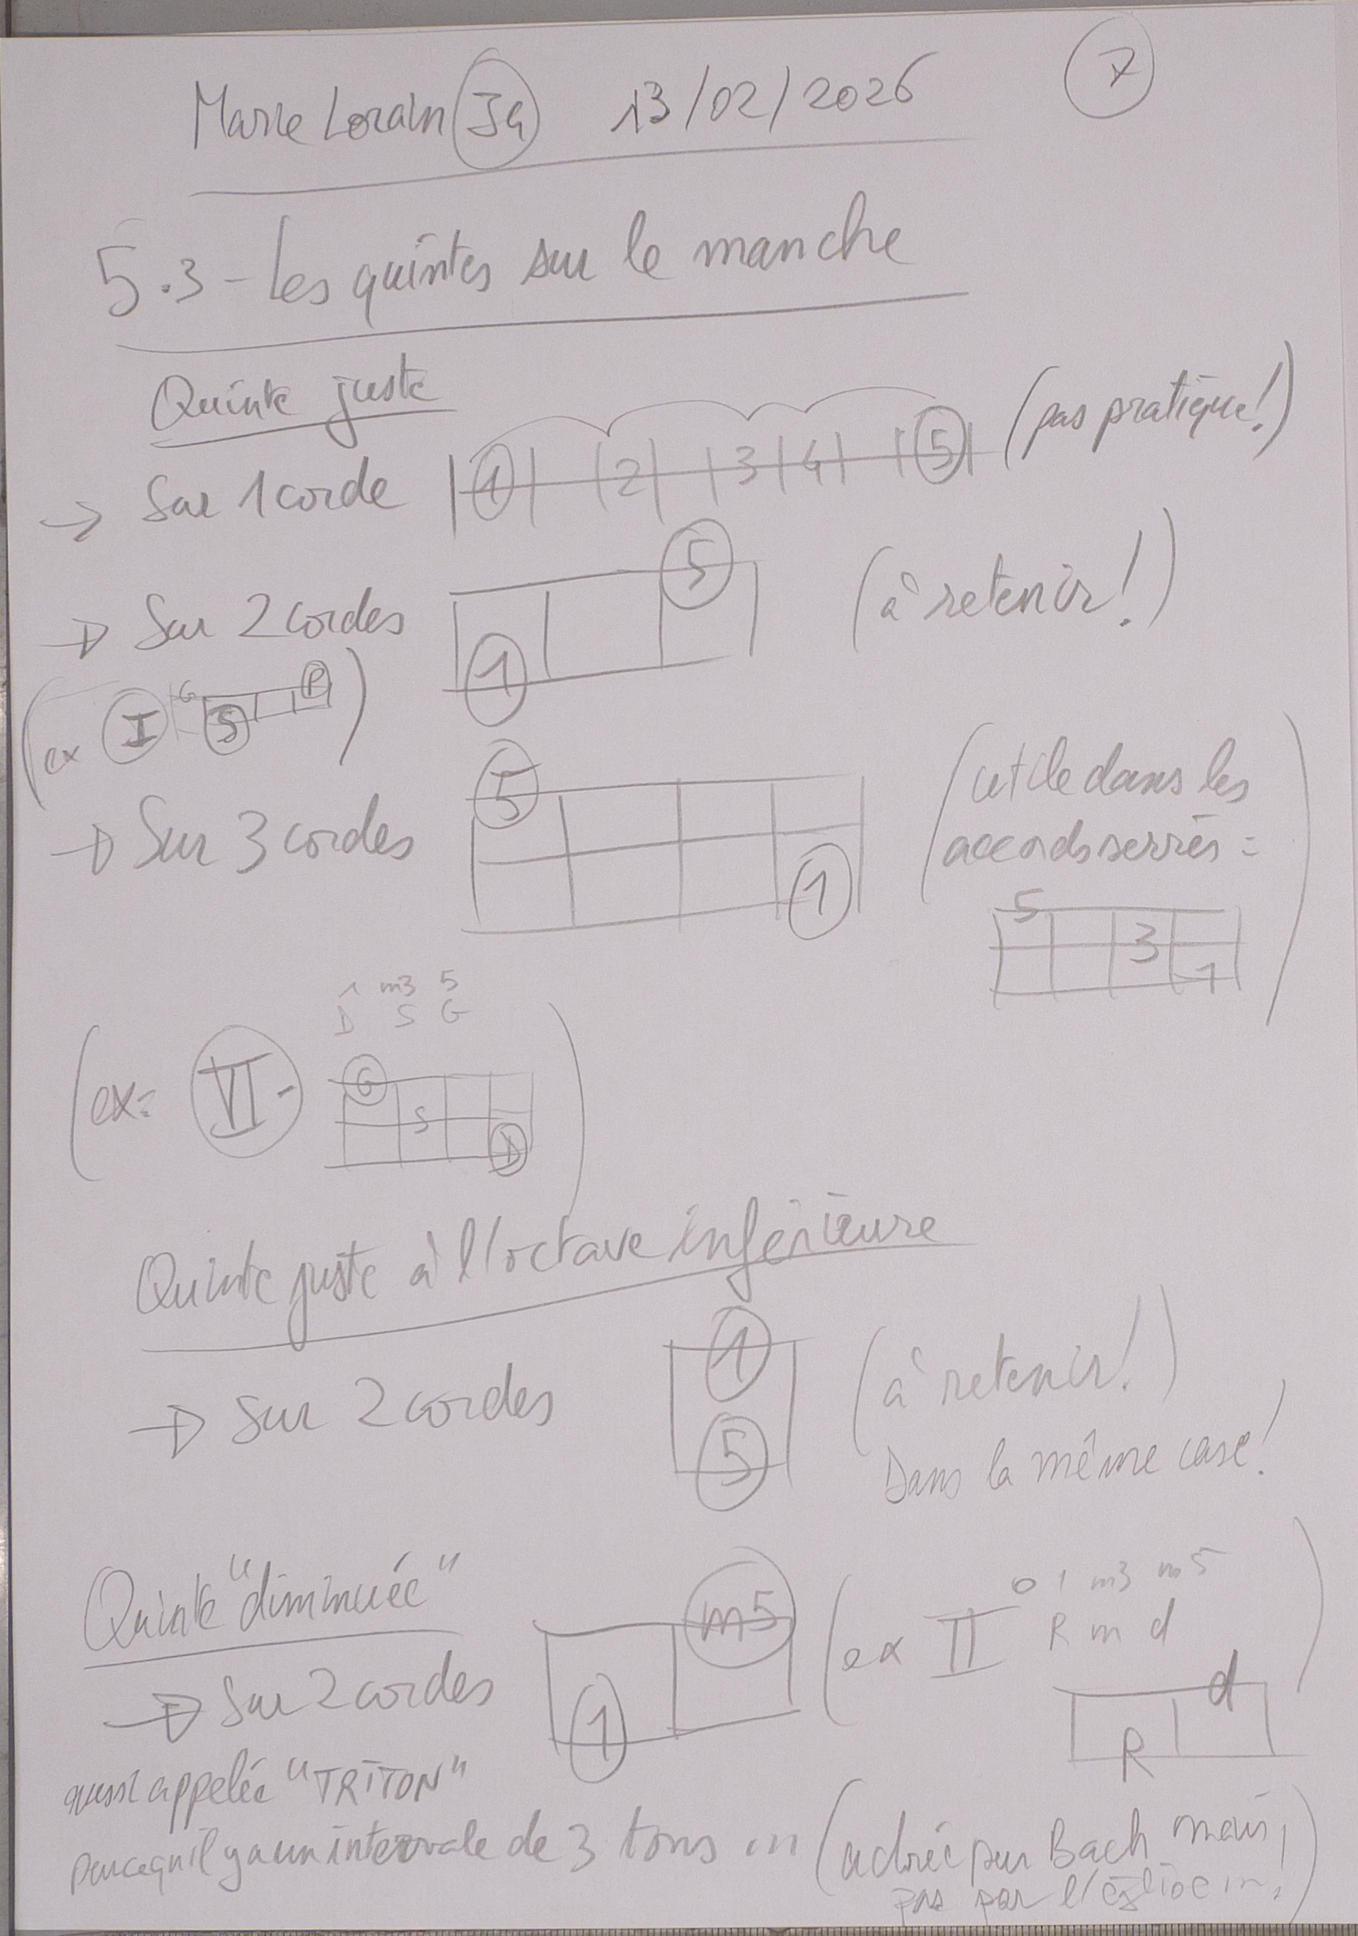 Marie Lorain J4 13/02/2026 7
5.3 - Les quintes sur le manche
Quinte juste
→ Sur 1 corde 1 2 3 4 5 (pas pratique!)
→ Sur 2 cordes 1 5 (à retenir!)
(ex I G S R)
→ Sur 3 cordes 5 1 (utile dans les
accords serrés =
5 3 1)
1 m3 5
D S G
(ex = VI- G S D)
Quinte juste à l'octave inférieure
→ Sur 2 cordes 1 5 (à retenir!)
Dans la même case!
Quinte "diminuée"
→ Sur 2 cordes 1 m5 (ex II o 1 m3 m5
R m d
R d)
aussi appelée "TRITON"
parce qu'il y a un intervale de 3 tons (adorée par Bach mais
pas par l'église !)